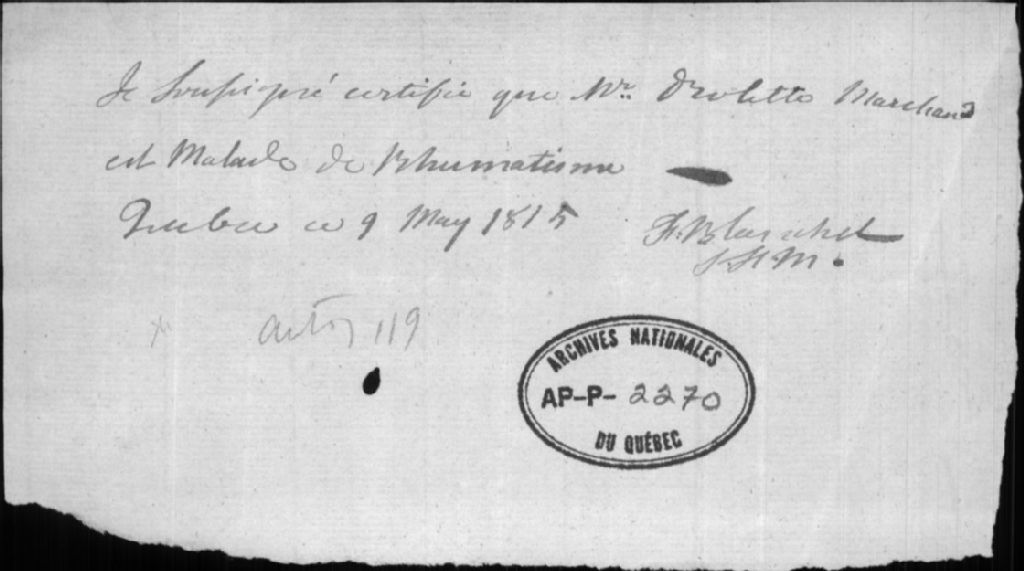 Je Soussigné certifie que Mr. Drolette Marchand
est Malade de Rhumatisme
Quebec ce 9 May 1815
Fr. Blanchet
119
ARCHIVES NATIONALES
AP-P- 2270
DU QUÉBEC